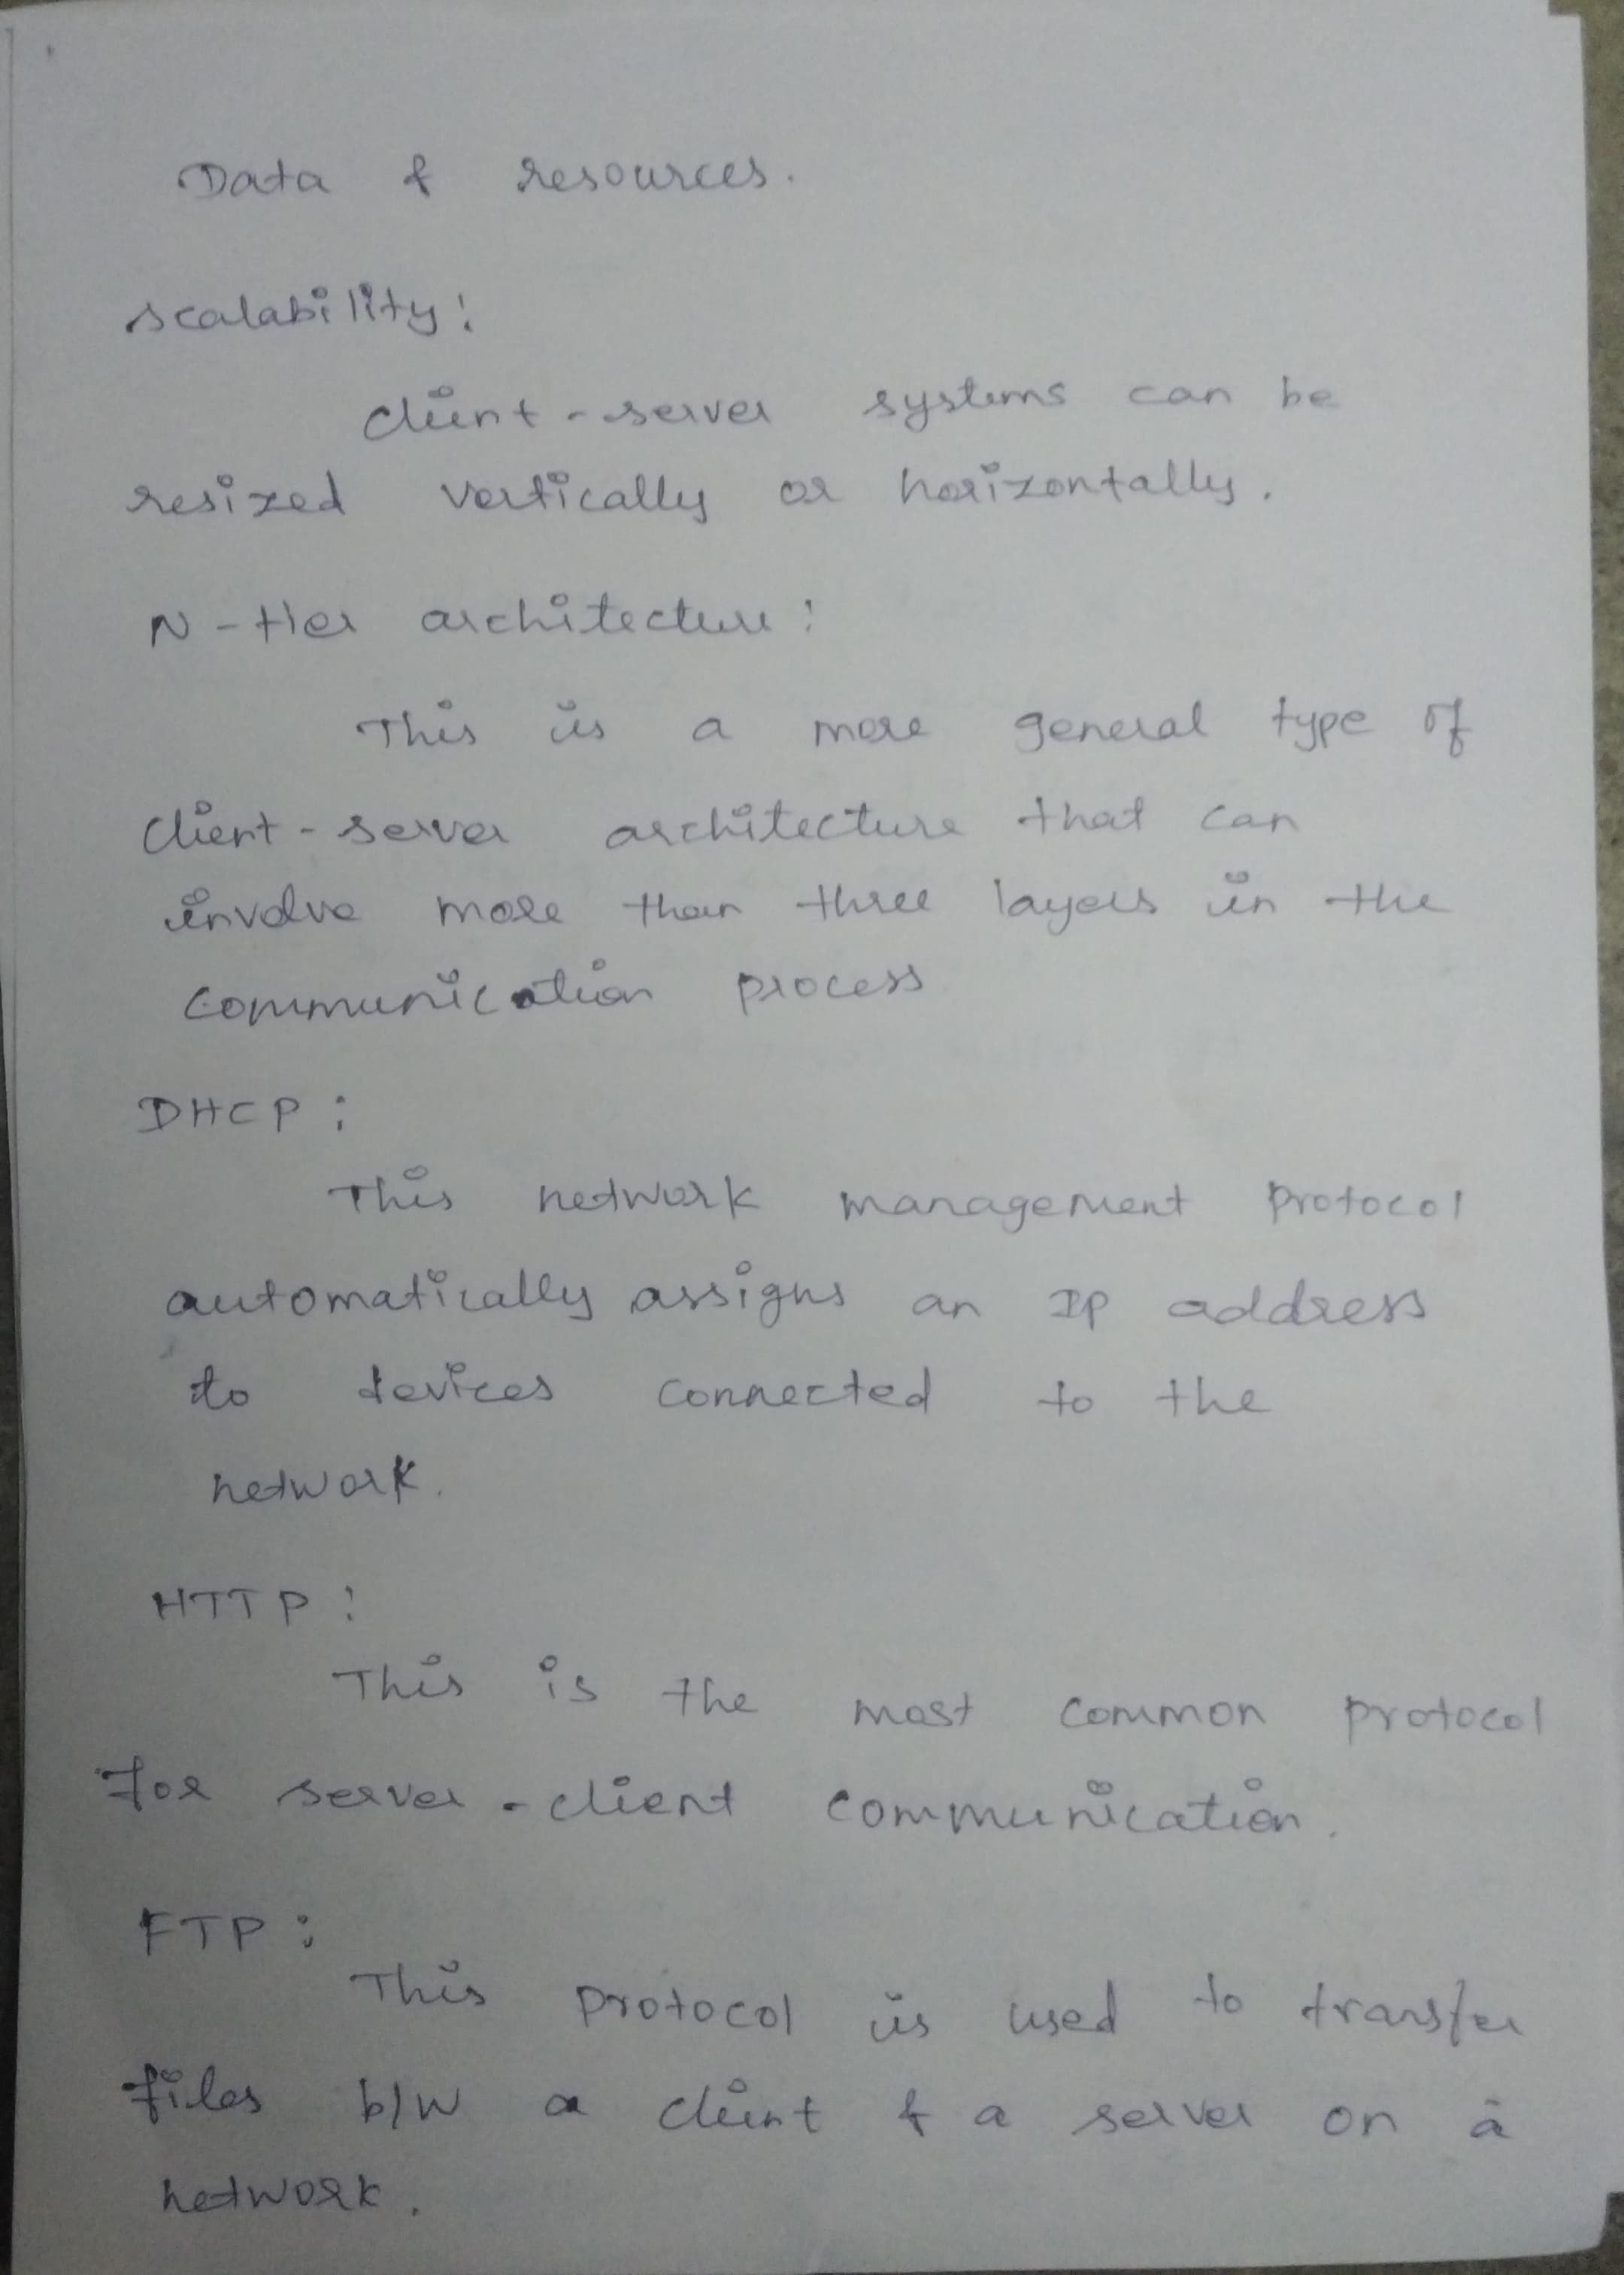 Data & resources.
scalability:
client-server systems can be
resized vertically or horizontally.
N-tier architecture:
This is a more general type of
client-server architecture that can
involve more than three layers in the
communication process
DHCP:
This network management protocol
automatically assigns an IP address
to devices connected to the
network.
HTTP:
This is the most common protocol
for server-client communication.
FTP:
This protocol is used to transfer
files b/w a client & a server on a
network.